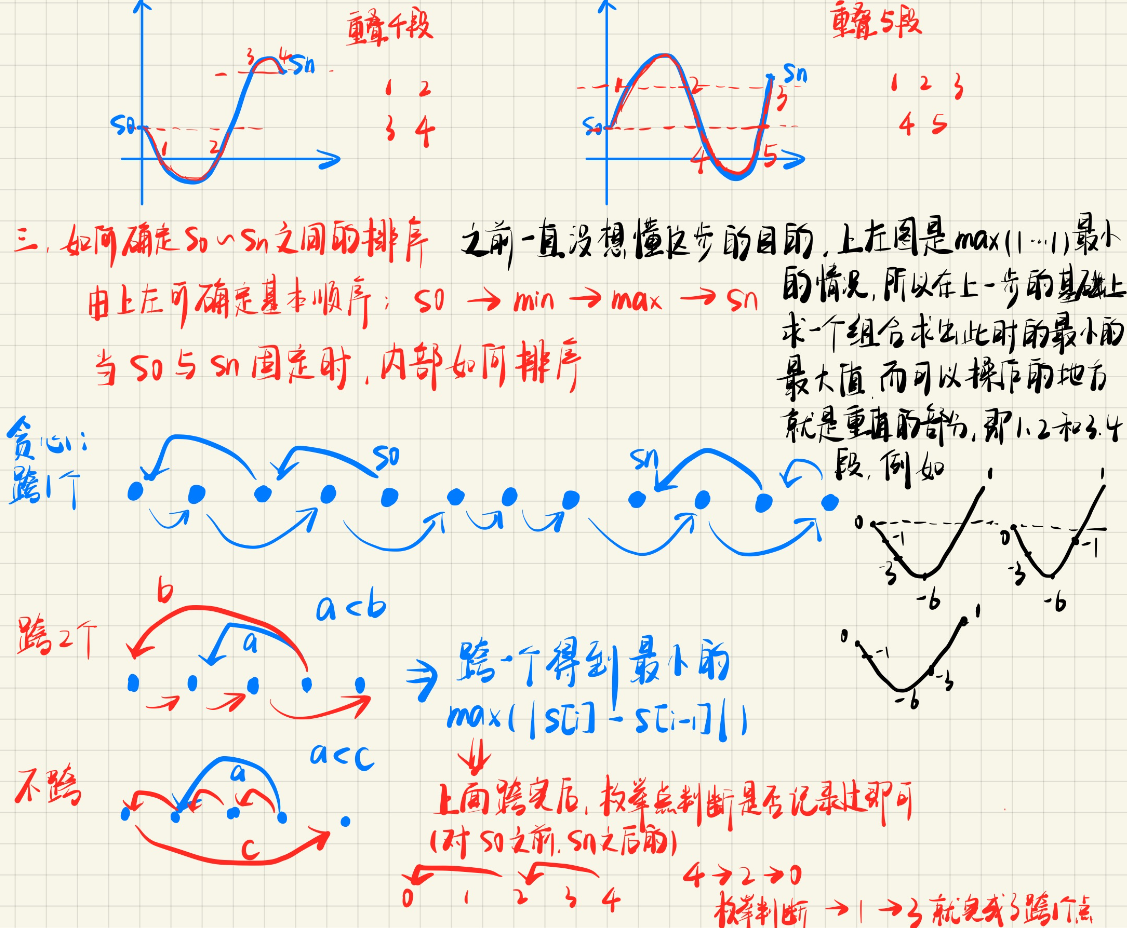 重叠4段
1 2
3 4
S0
1 2
3 4
Sn
重叠5段
1 2 3
4 5
S0
1 2 3
4 5
Sn
三、如何确定S0~Sn之间的排序
由上左可确定基本顺序: S0 → min → max → Sn
当S0与Sn固定时,内部如何排序
之前一直没想懂这步的目的,上左图是max(|…|)最小
的情况,所以在上一步的基础上
求一个组合求出此时的最小的
最大值,而可以操作的地方
就是重叠的部分,即1.2和3.4
段,例如
0 -1 -3 -6 1
0 -3 -6 -1 1
0 -1 -6 -3 1
贪心:
跨1个
S0
Sn
跨2个
b
a
a<b
⇒ 跨一个得到最小的
max(|S[i]-S[i-1]|)
不跨
a
c
a<c
上面跨完后,枚举点判断是否记录过即可
(对S0之前,Sn之后的)
0 1 2 3 4
4→2→0
枚举判断 →1→3 就完成了跨1个点